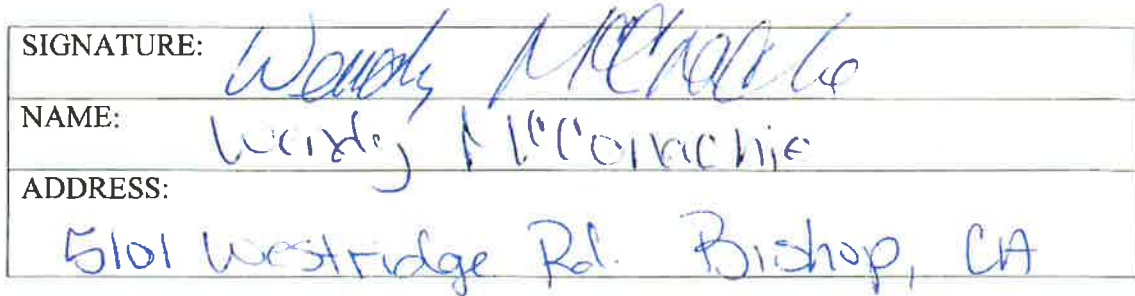 SIGNATURE: Wendy McConachie
NAME: Wendy McConachie
ADDRESS:
5101 Westridge Rd. Bishop, CA